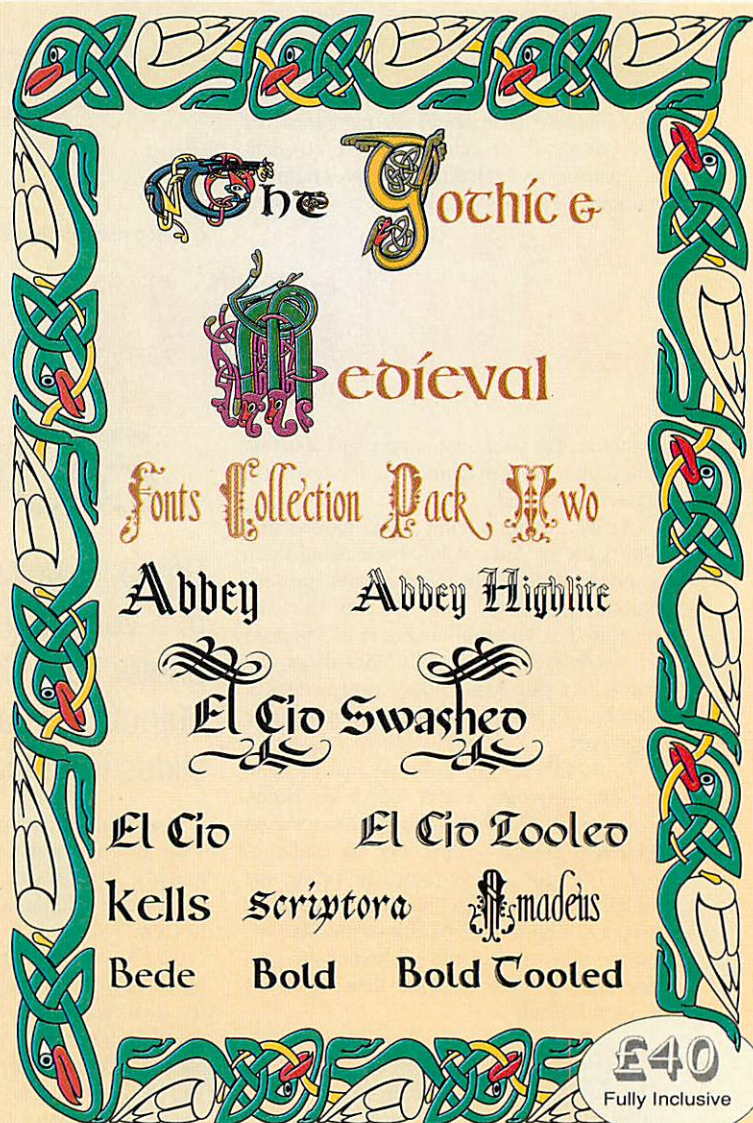 The Gothic &
Medieval
Fonts Collection Pack Two
Abbey Abbey Highlite
El Cid Swashed
El Cid El Cid Tooled
Kells Scriptora Amadeus
Bede Bold Bold Tooled
£40
Fully Inclusive